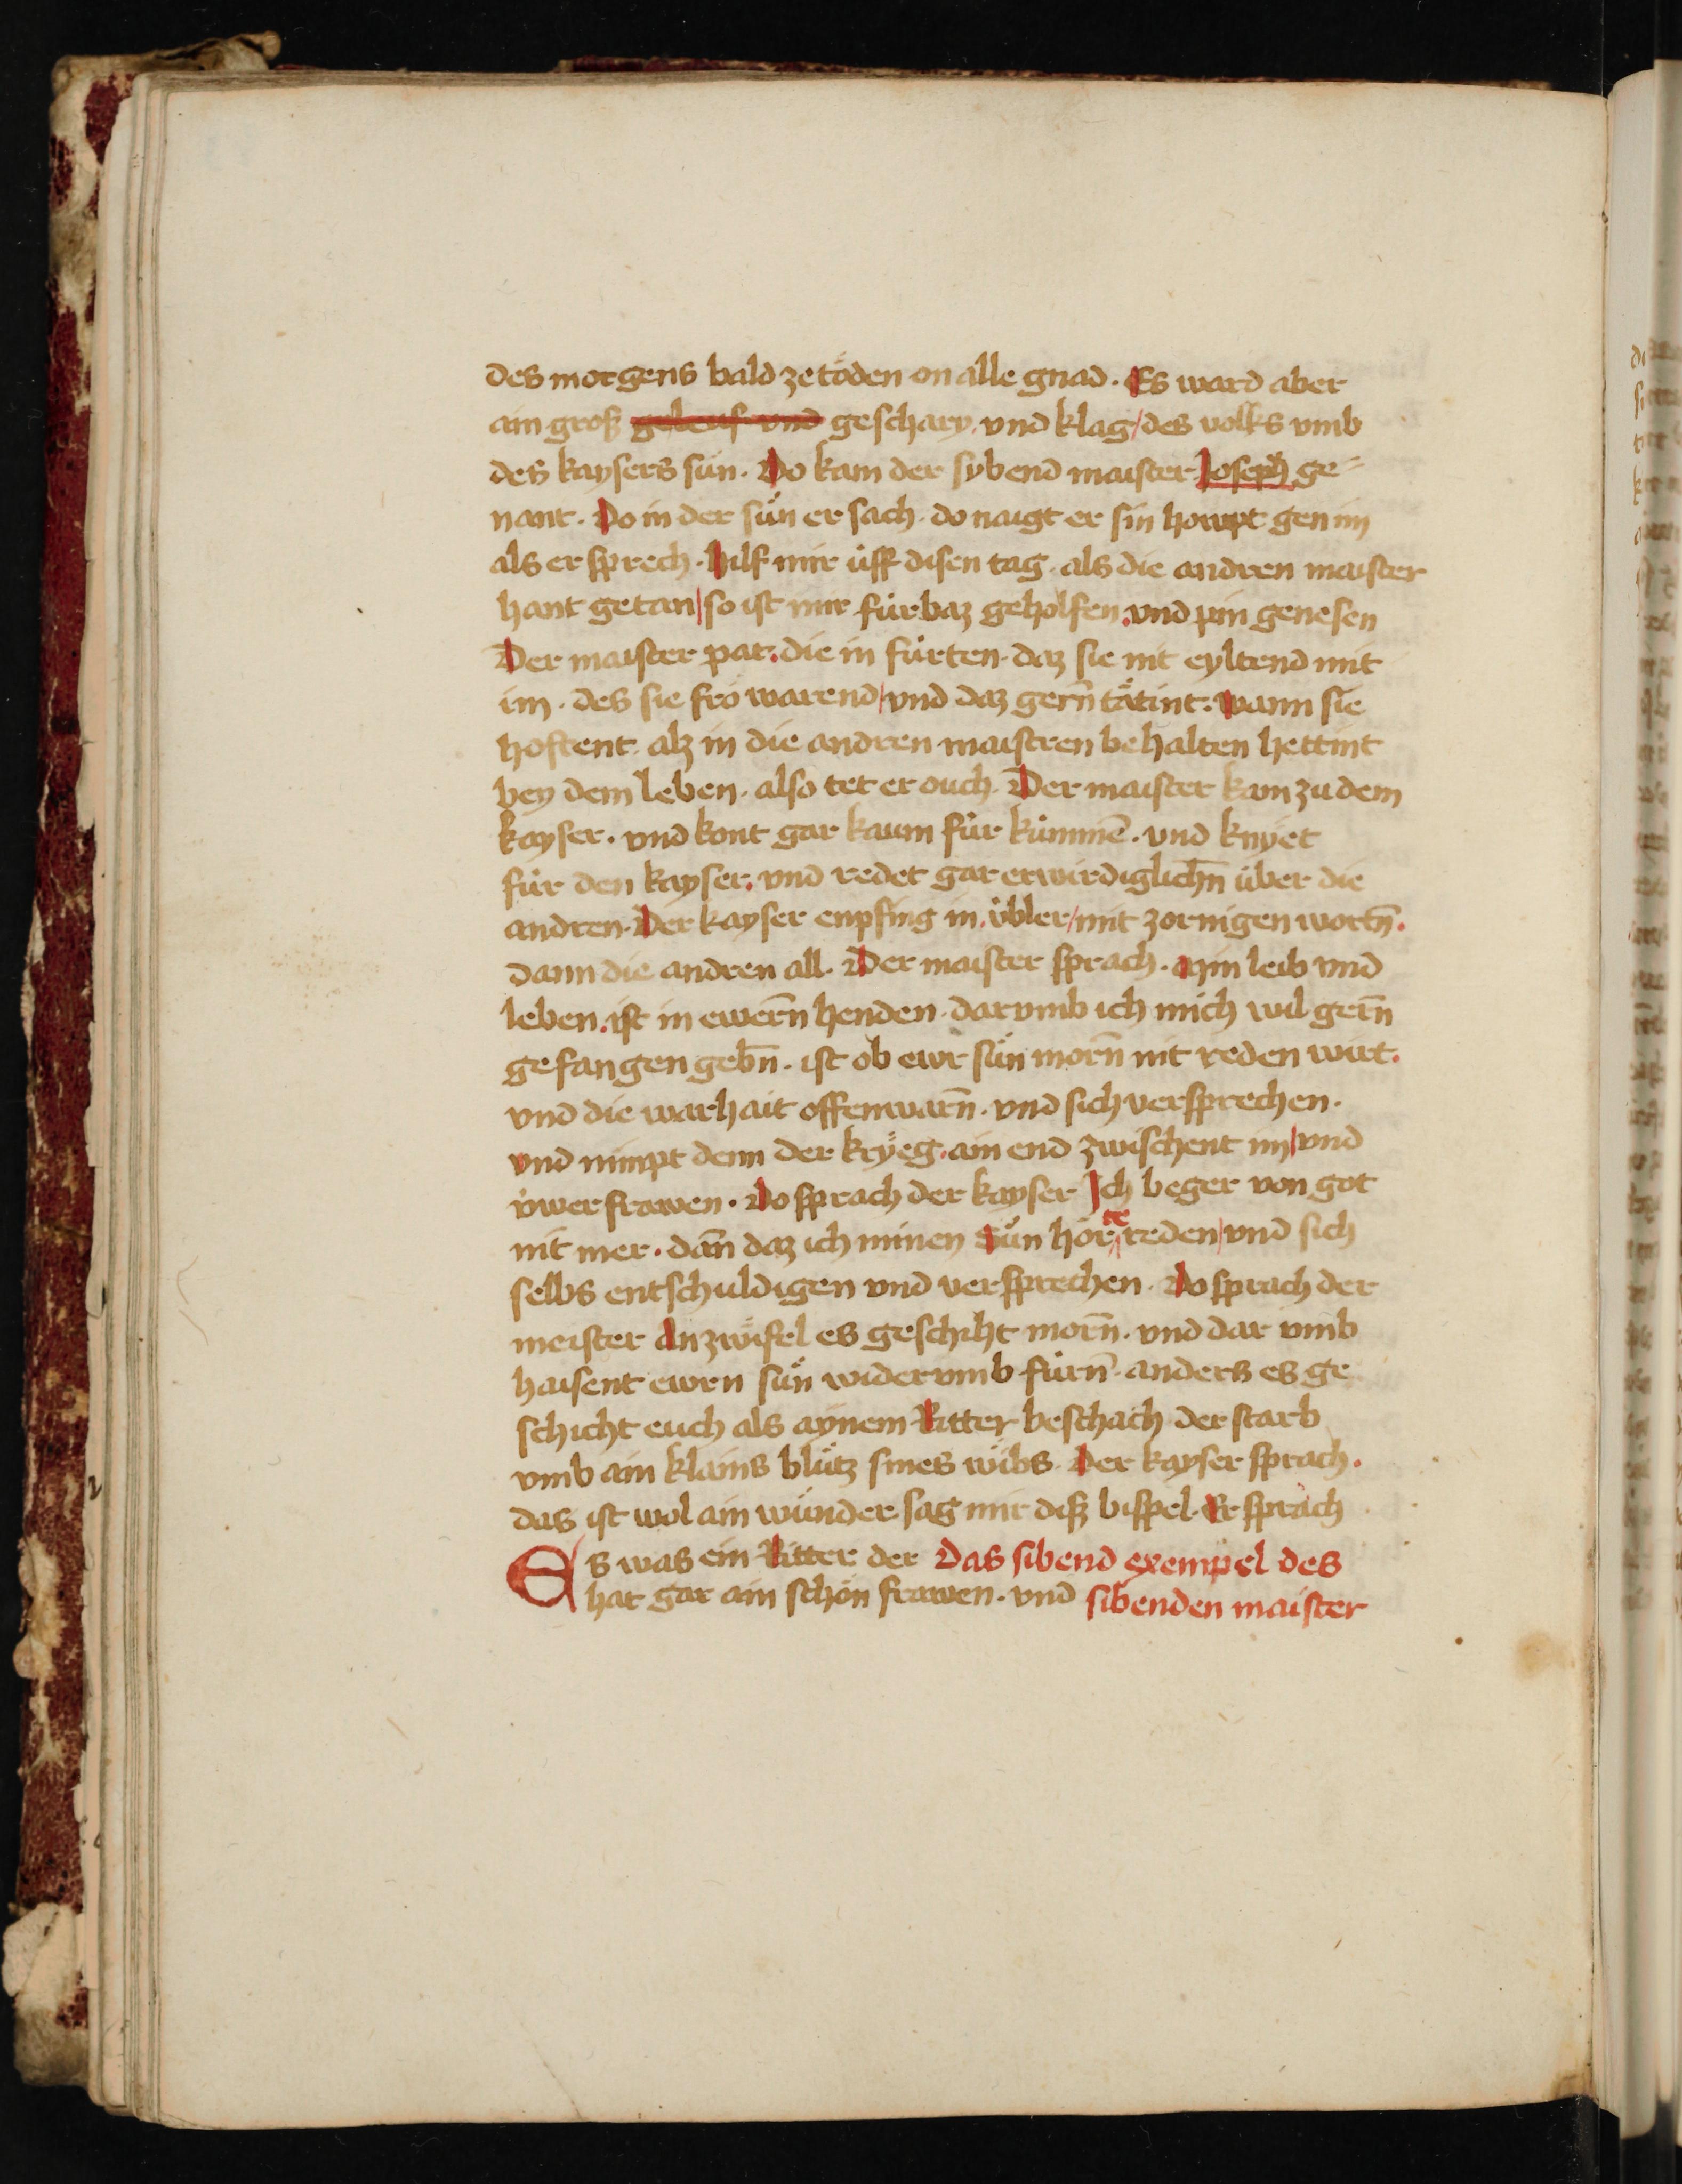 des morgens bald ze töden on alle gnad. Es ward aber
ain groß geleuf vnd geschary, vnd klag / des volks vmb
des kaysers sün. Do kam der sybend maister Joseph ge⸗
nant. Do in der sün er sach. do naigt er sin howpt gen im
als er sprech. hilf mir üff disen tag. als die andren maister
hant getan / so ist mir fürbaz geholfen. vnd pin genesen
Der maister pat. die in fürten. daz sie nit eyltend mit
im. des sie fro warend / vnd daz gern̄ tätint. wann sie
hoftent alz in die andren maistren behalten hettint
bey dem leben. also tet er ouch. Der maister kam zu dem
kayser. vnd kont gar kaum für kümmē. vnd knyet
für den kayser. vnd redet gar erwirdiglichn̄ über die
andren. Der kayser enpfing in. übler / mit zornigen wortn̄.
dann die andren all. Der maister sprach. Min leib vnd
leben. ist in ewern̄ henden. darvmb ich mich wil gern̄
gefangen gebn̄. ist ob ewr sün morn̄ nit reden wirt.
vnd die warhait offenwarn̄. vnd sich versprechen.
vnd nimpt denn der kryeg. ain end zwischent im / vnd
üwer frawen. Do sprach der kayser Ich beger von got
nit mer. dan̄ daz ich minen sün hörte reden / vnd sich
selbs entschuldigen vnd versprechen. Do sprach der
meister An zwifel es geschiht morn̄. vnd dar vmb
haisent ewrn sün widervmb fürn̄. anders es ge
schicht euch als aynem Ritter beschach der starb
vmb ain klains blütz sines wibs. Der kayser sprach.
das ist wol ain wunder sag mir diß bispel. Er sprach
Es was ein Ritter der Das sibend exempel des
hat gar ain schön frawen. vnd sibenden maister